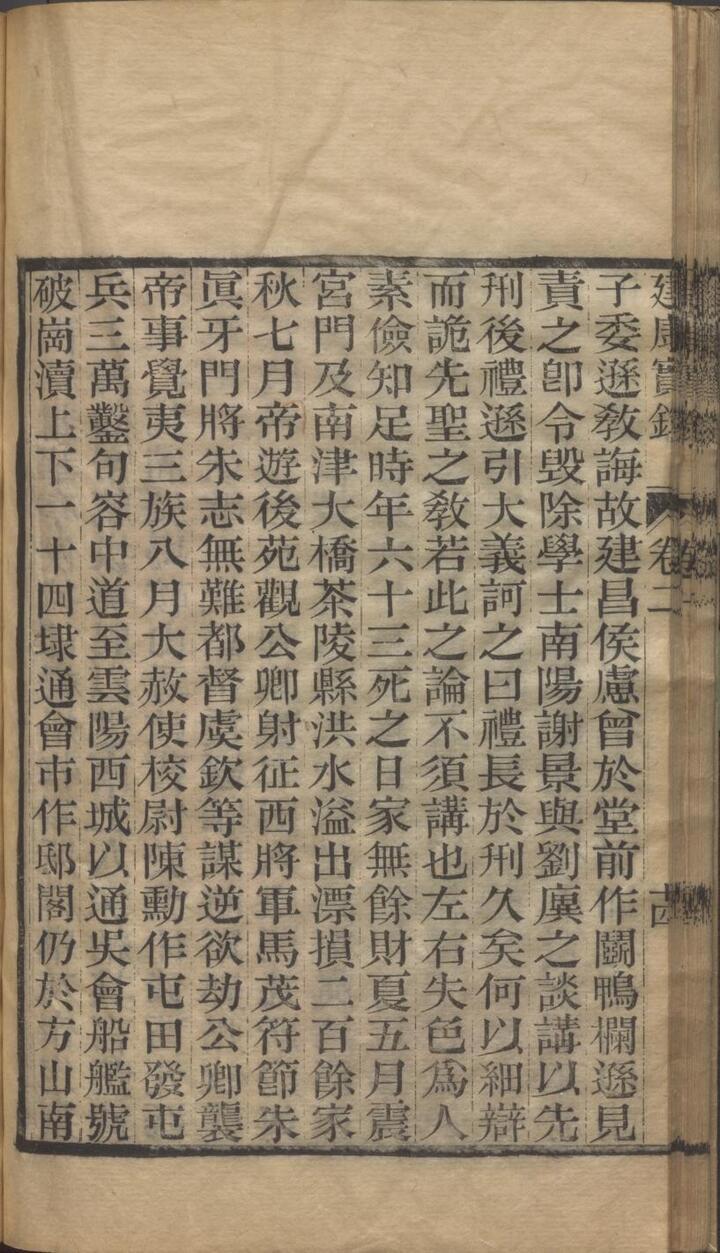 建康實錄 卷二 十四
子委遜敎誨故建昌侯慮曾於堂前作鬬鴨欄遜見
責之卽令毁除學士南陽謝景與劉廙之談講以先
刑後禮遜引大義訶之曰禮長於刑久矣何以細辯
而詭先聖之敎若此之論不須講也左右失色爲人
素儉知足時年六十三死之日家無餘財夏五月震
宮門及南津大橋茶陵縣洪水溢出漂損二百餘家
秋七月帝遊後苑觀公卿射征西將軍馬茂符節朱
眞牙門將朱志無難都督虞欽等謀逆欲劫公卿襲
帝事覺夷三族八月大赦使校尉陳勳作屯田發屯
兵三萬鑿句容中道至雲陽西城以通吳會船艦號
破崗瀆上下一十四埭通會市作邸閣仍於方山南